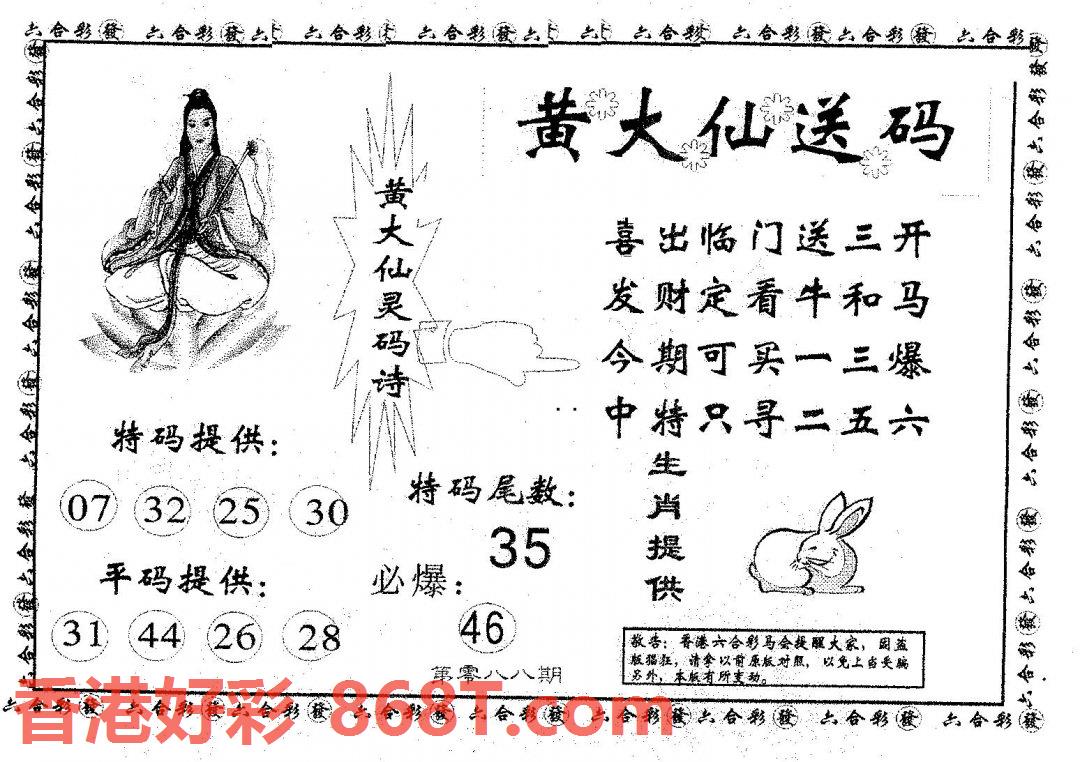 六合彩發 六合彩發 六 六合彩 六合彩發 六 六合彩 六合彩發 六合彩發 六合彩
黄大仙送码
黄大仙灵码诗
喜出临门送三开
发财定看牛和马
今期可买一三爆
中特只寻二五六
特码提供：
07 32 25 30
平码提供：
31 44 26 28
特码尾数：
35
必爆：
46
第零八八期
生肖提供
敬告：香港六合彩马会提醒大家，因盗
版猖狂，请拿以前原版对照，以免上当受骗
另外，本版有所变动。
香港好彩 868T.com
六合彩發 六合彩發 六合彩發 六合彩發 六合彩發